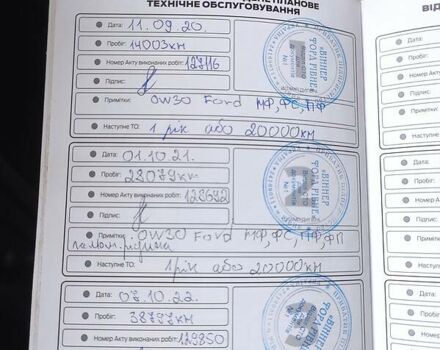 ТЕХНІЧНЕ ОБСЛУГОВУВАННЯ
Дата: 11.09.20.
Пробіг: 14003км
Номер Акту виконаних робіт: 127116
Підпис:
Примітки: 0W30 Ford МФ, ФС, ПФ
Наступне ТО: 1 рік або 20000км
Дата: 01.10.21.
Пробіг: 28079км
Номер Акту виконаних робіт: 128692
Підпис:
Примітки: 0W30 Ford МФ, ФС, ПФ, ФП
Наступне ТО: 1 рік або 20000км
Дата: 07.10.22.
Пробіг: 38797км
Номер Акту виконаних робіт: 129850
Підпис:
«ВІННЕР
ФОРД РІВНЕ»
«ВІННЕР
ФОРД РІВНЕ»
«ВІННЕР